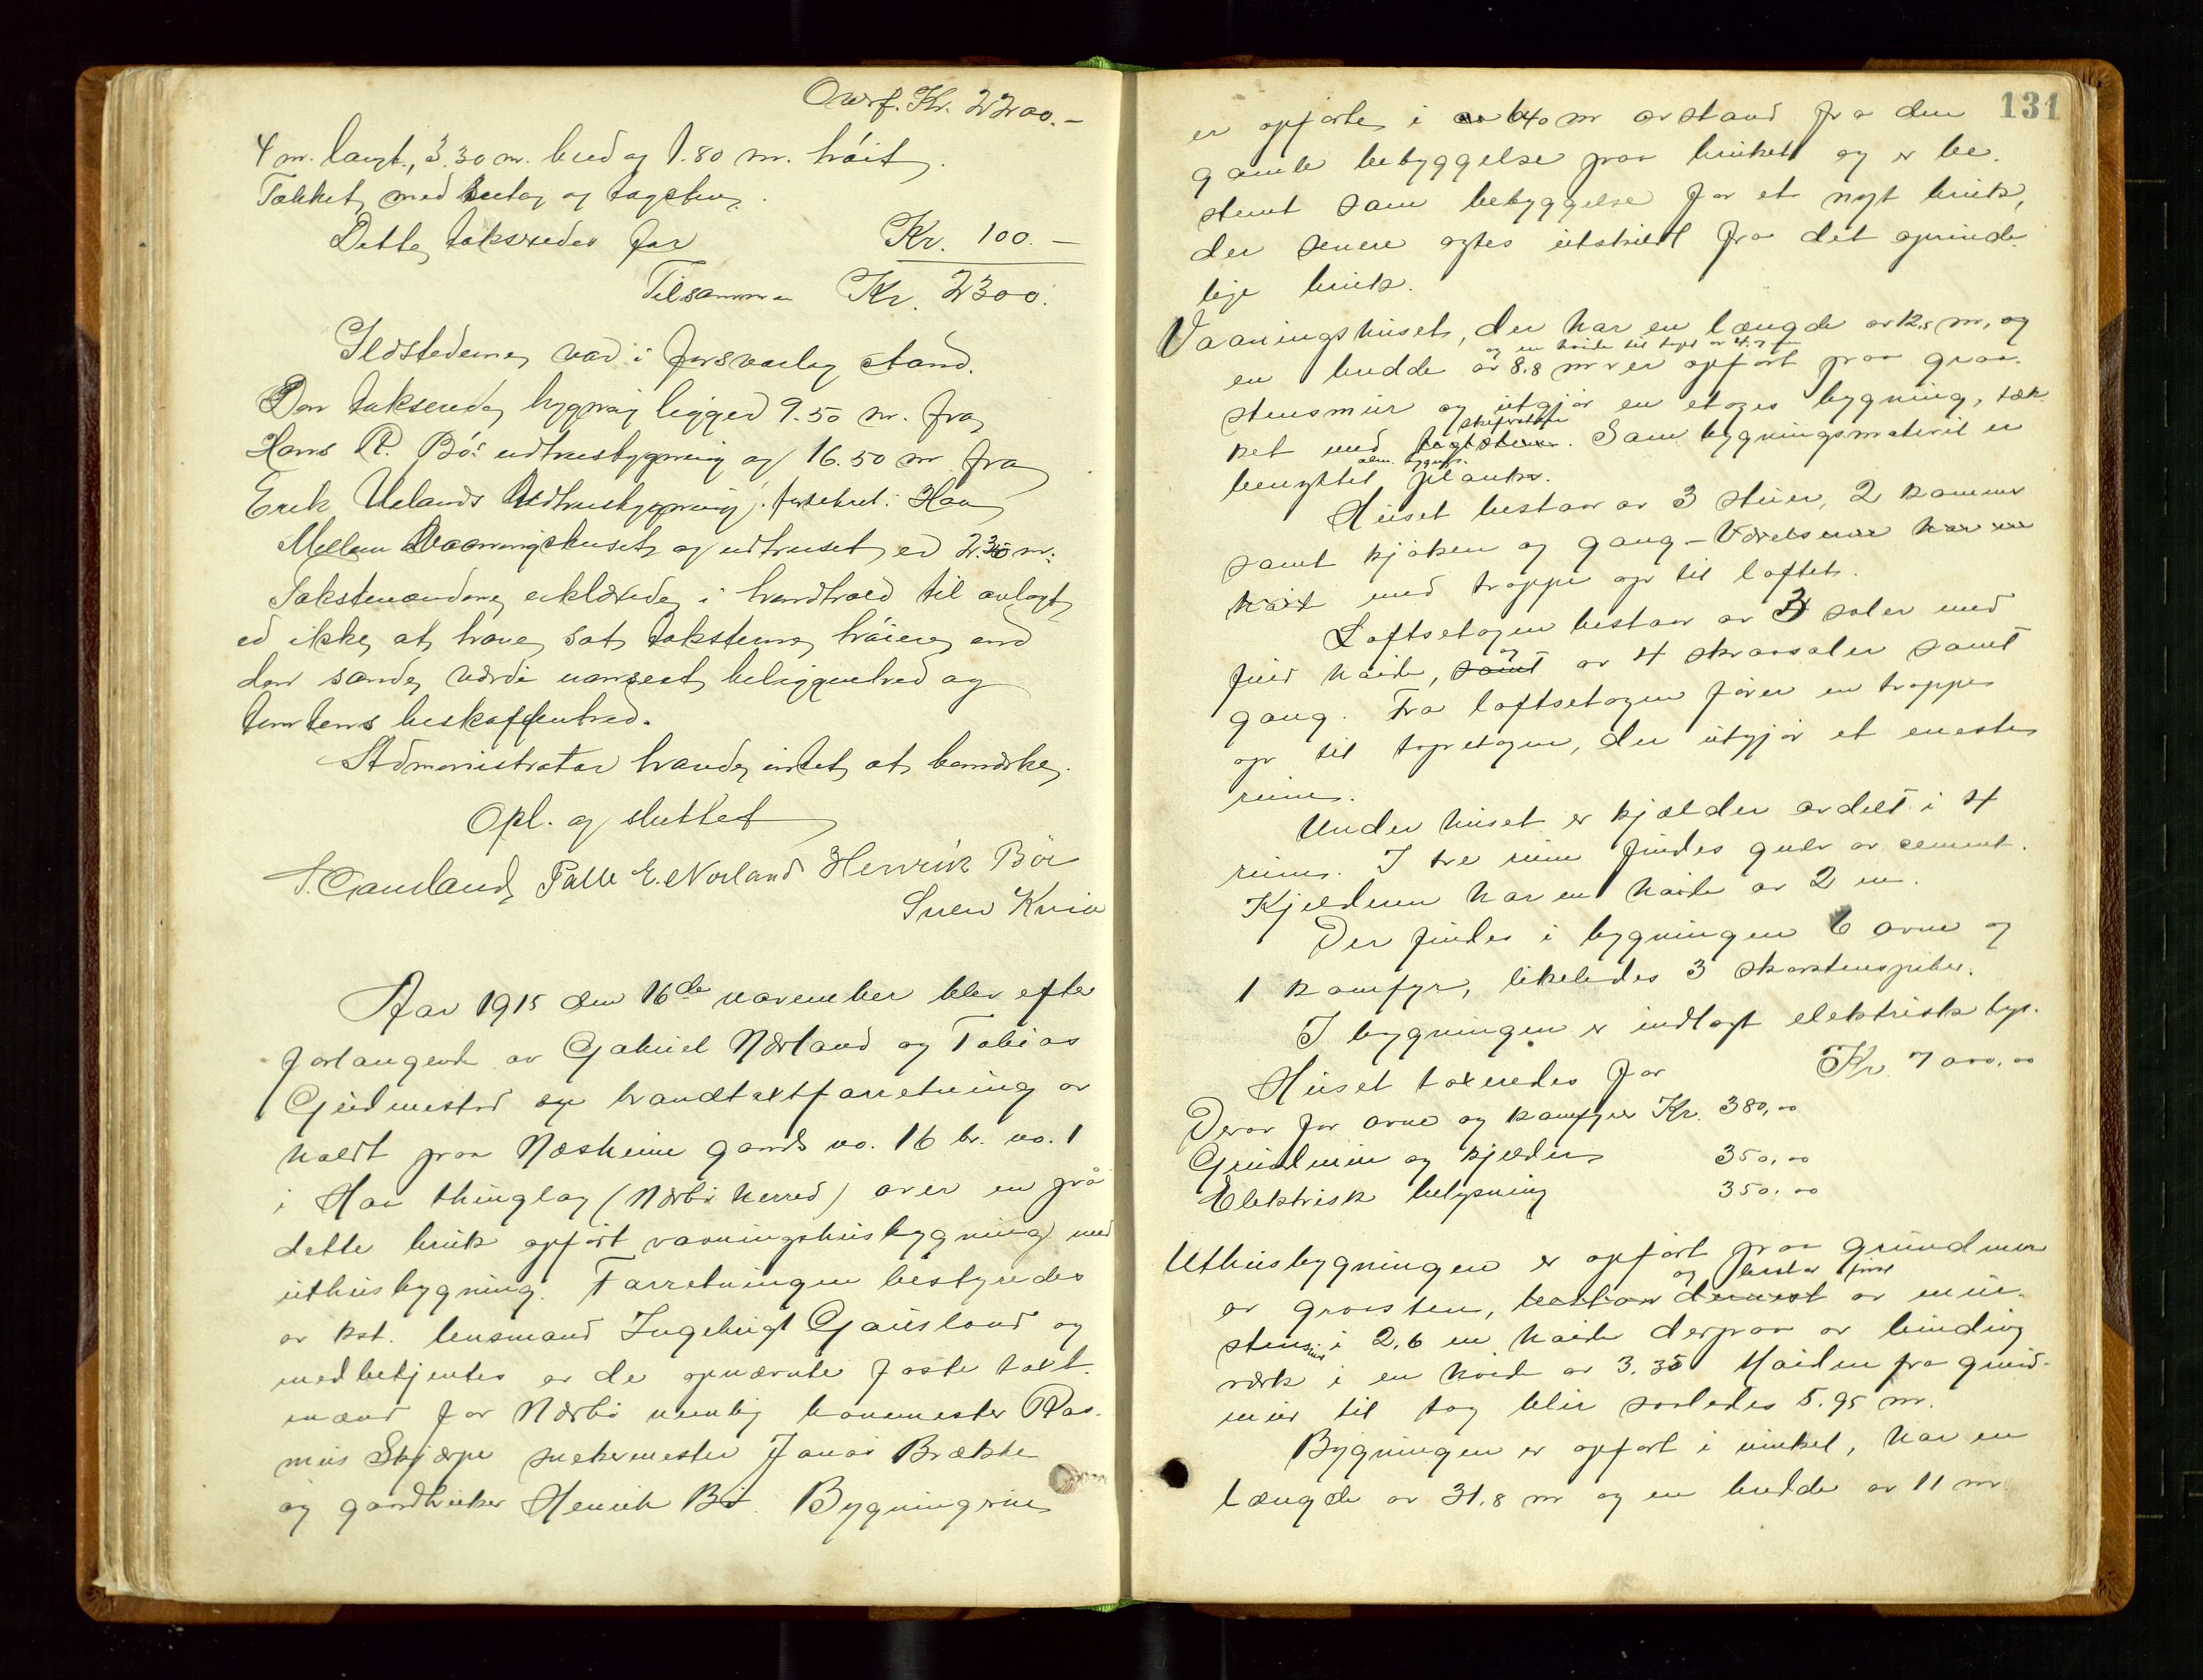 Overf. Kr. 2200.-
4 m. langt, 3.30 m. bred og 1.80 m. höit.
Tækket med and tagsten.
Dette takseredes for Kr. 100.-
Tilsammen Kr. 2300.
Ildstederne var i forsvarlig stand.
Den takserede bygning ligger 9.50 m. fra
Hans R. Bö's udhusbygning og 16.50 m fra
Erik Uelands Udhusbygning.
Mellem Vaaningshuset og udhuset er 2.35 m.
Takstmændene erklærede i henhold til avlagt
ed ikke at have sat taksterne höiere end
den sande værdi uanseet beliggenhed og
tomtens beskaffenhed.
Administrator havde intet at bemærke.
Opl. og sluttet
I. Gausland, Palle E. Norland Henrik Bör
Sven
Aar 1915 den 16de november blev efter
forlangende av Gabriel Nærland og Tobias
Gudmestad en brandtaxtforretning av
holdt paa Næsheim gards no. 16 br. no. 1
i Haa thinglag (Nærbö herred) over en paa
dette bruk opfört vaaningshusbygning med
uthusbygning. Forretningen bestyredes
av kst. lensmand Ingebrigt Gausland og
medbetjentes av de opnævnte faste taxt-
mænd for Nærbö nemlig banemester Ras-
mus Skjærpe snekermester Jonas Brække
og gaardbruker Henrik Bö. Bygningerne
131
er opförte i 640 m avstand fra den
gamle bebyggelse paa bruket og er be-
stemt som bebyggelse for et nyt bruk,
der senere agtes utskildt fra det oprinde-
lige bruk.
Vaaningshuset, der har en længde av m, og
og en höide til taget av 4.7 m
en bredde av 8.8 m er opfört paa graa-
stensmur og utgjör en etages bygning, tæk-
skifersten
ket med taglstener. Som bygningsmateriel er
alm. bygnings-
benyttet planker.
Huset bestaar av 3 stuer, 2 kammer
samt kjöken og gang - Værelserne har en
höit med trappe op til loftet.
Loftsetagen bestaar av 3 saler med
og
fuld höide, samt av 4 skraasaler samt
gang. Fra loftsetagen förer en trappe
op til topetagen, der utgjör et eneste
rum.
Under huset er kjælder avdelt i 4
rum. I tre rum findes gulv av cement.
Kjælderen har en höide av 2 m.
Der findes i bygningen 6 ovne og
1 komfyr, likeledes 3 skorstenspiber.
I bygningen er indlagt elektrisk lys.
Huset taxeredes for Kr. 7000.00
Derav for ovne og komfyr Kr. 380,00
Grundmur og kjælder 350,00
Elektrisk belysning 350,00
Uthusbygningen er opfört paa grundmur
og bestaar först
av graasten, bestaar dernæst av mur-
stensmur i 2,6 m höide derpaa av binding
værk i en höide av 3.35 Höiden fra grund-
mur til tag blir saaledes 5.95 m.
Bygningen er opfört i vinkel, har en
længde av 31.8 m og en bredde av 11 m